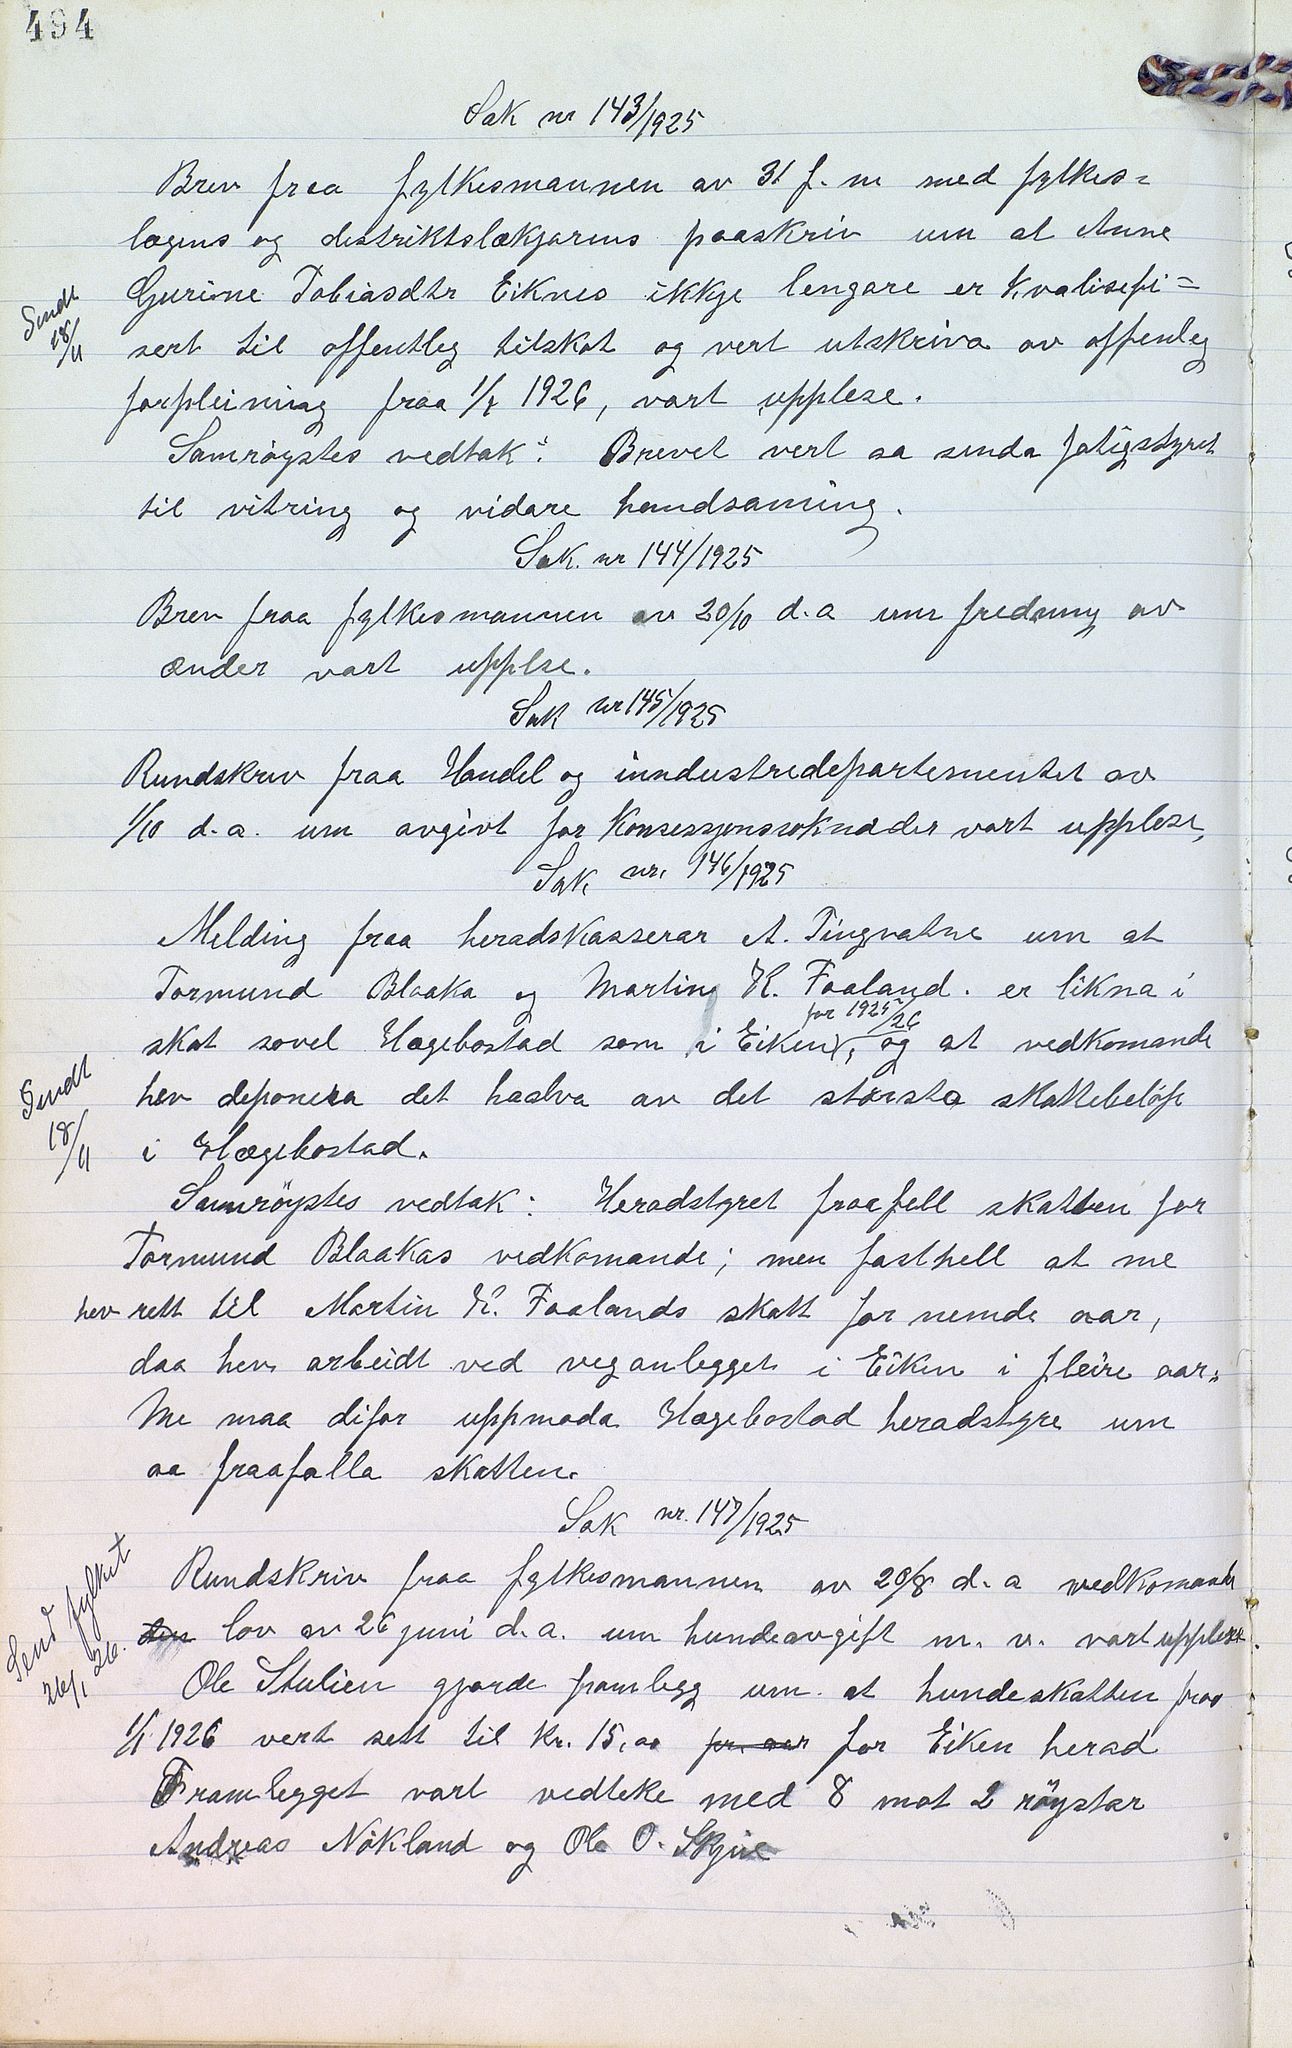 494
Sak nr 143/1925
Brev fraa fylkesmannen av 31 f. m med fylkes=
lægens og distriktslækjarens paaskriv um at Anne
Gurine Tobiasdtr Eiknes ikkje lengare er kvalisefi=
Sendt
18/11
sert til offentleg tilskot og vert utskriva av offenleg
forpleining fraa 1/1 1926, vart upplese.
Samröystes vedtak: Brevet vert aa senda fatigstyret
til vitring og vidare handsaming.
Sak. nr 144/1925
Brev fraa fylkesmannen av 20/10 d.a um fredning av
ænder vart upplse.
Sak nr 145/1925
Rundskriv fraa Handel og inndustridepartementet av
1/10 d.a. um avgivt for konsesjonssøknader vart upplese,
Sak, nr. 146/1925
Melding fraa heradskasserar A. Tingvatne um at
Tormund Blaaka og Martin K. Faaland. er likna i
for 1925/26
skat sovel Hægebostad som i Eiken, og at vedkomande
Sendt
18/11
hev deponera det haalva av det störste skattebelöp
i Hægebostad.
Samröystes vedtak: Heradstyret fraafell skatten for
Tormund Blaakas vedkomande; men fasthell at me
hev rett til Martin K. Faalands skatt for nemde aar,
daa hev arbeidt ved veganlegget i Eiken i fleire aar.
Me maa difor uppmoda Hægebostad heradstyre um
aa fraafalla skatten.
Sak nr. 147/1925
Send fylket
26/1 26.
Rundskriv fraa fylkesmannen av 20/8 d.a vedkomande
den lov av 26 juni d.a. um hundeavgift m. v. vart upplese.
Ole Stulien gjorde framlegg um at hundeskatten fraa
1/1 1926 vert sett til kr. 15,00 pr. aar for Eiken herad
Framlegget vart vedteke med 8 mot 2 röystar
Andreas Nökland og Ole O. Skjine